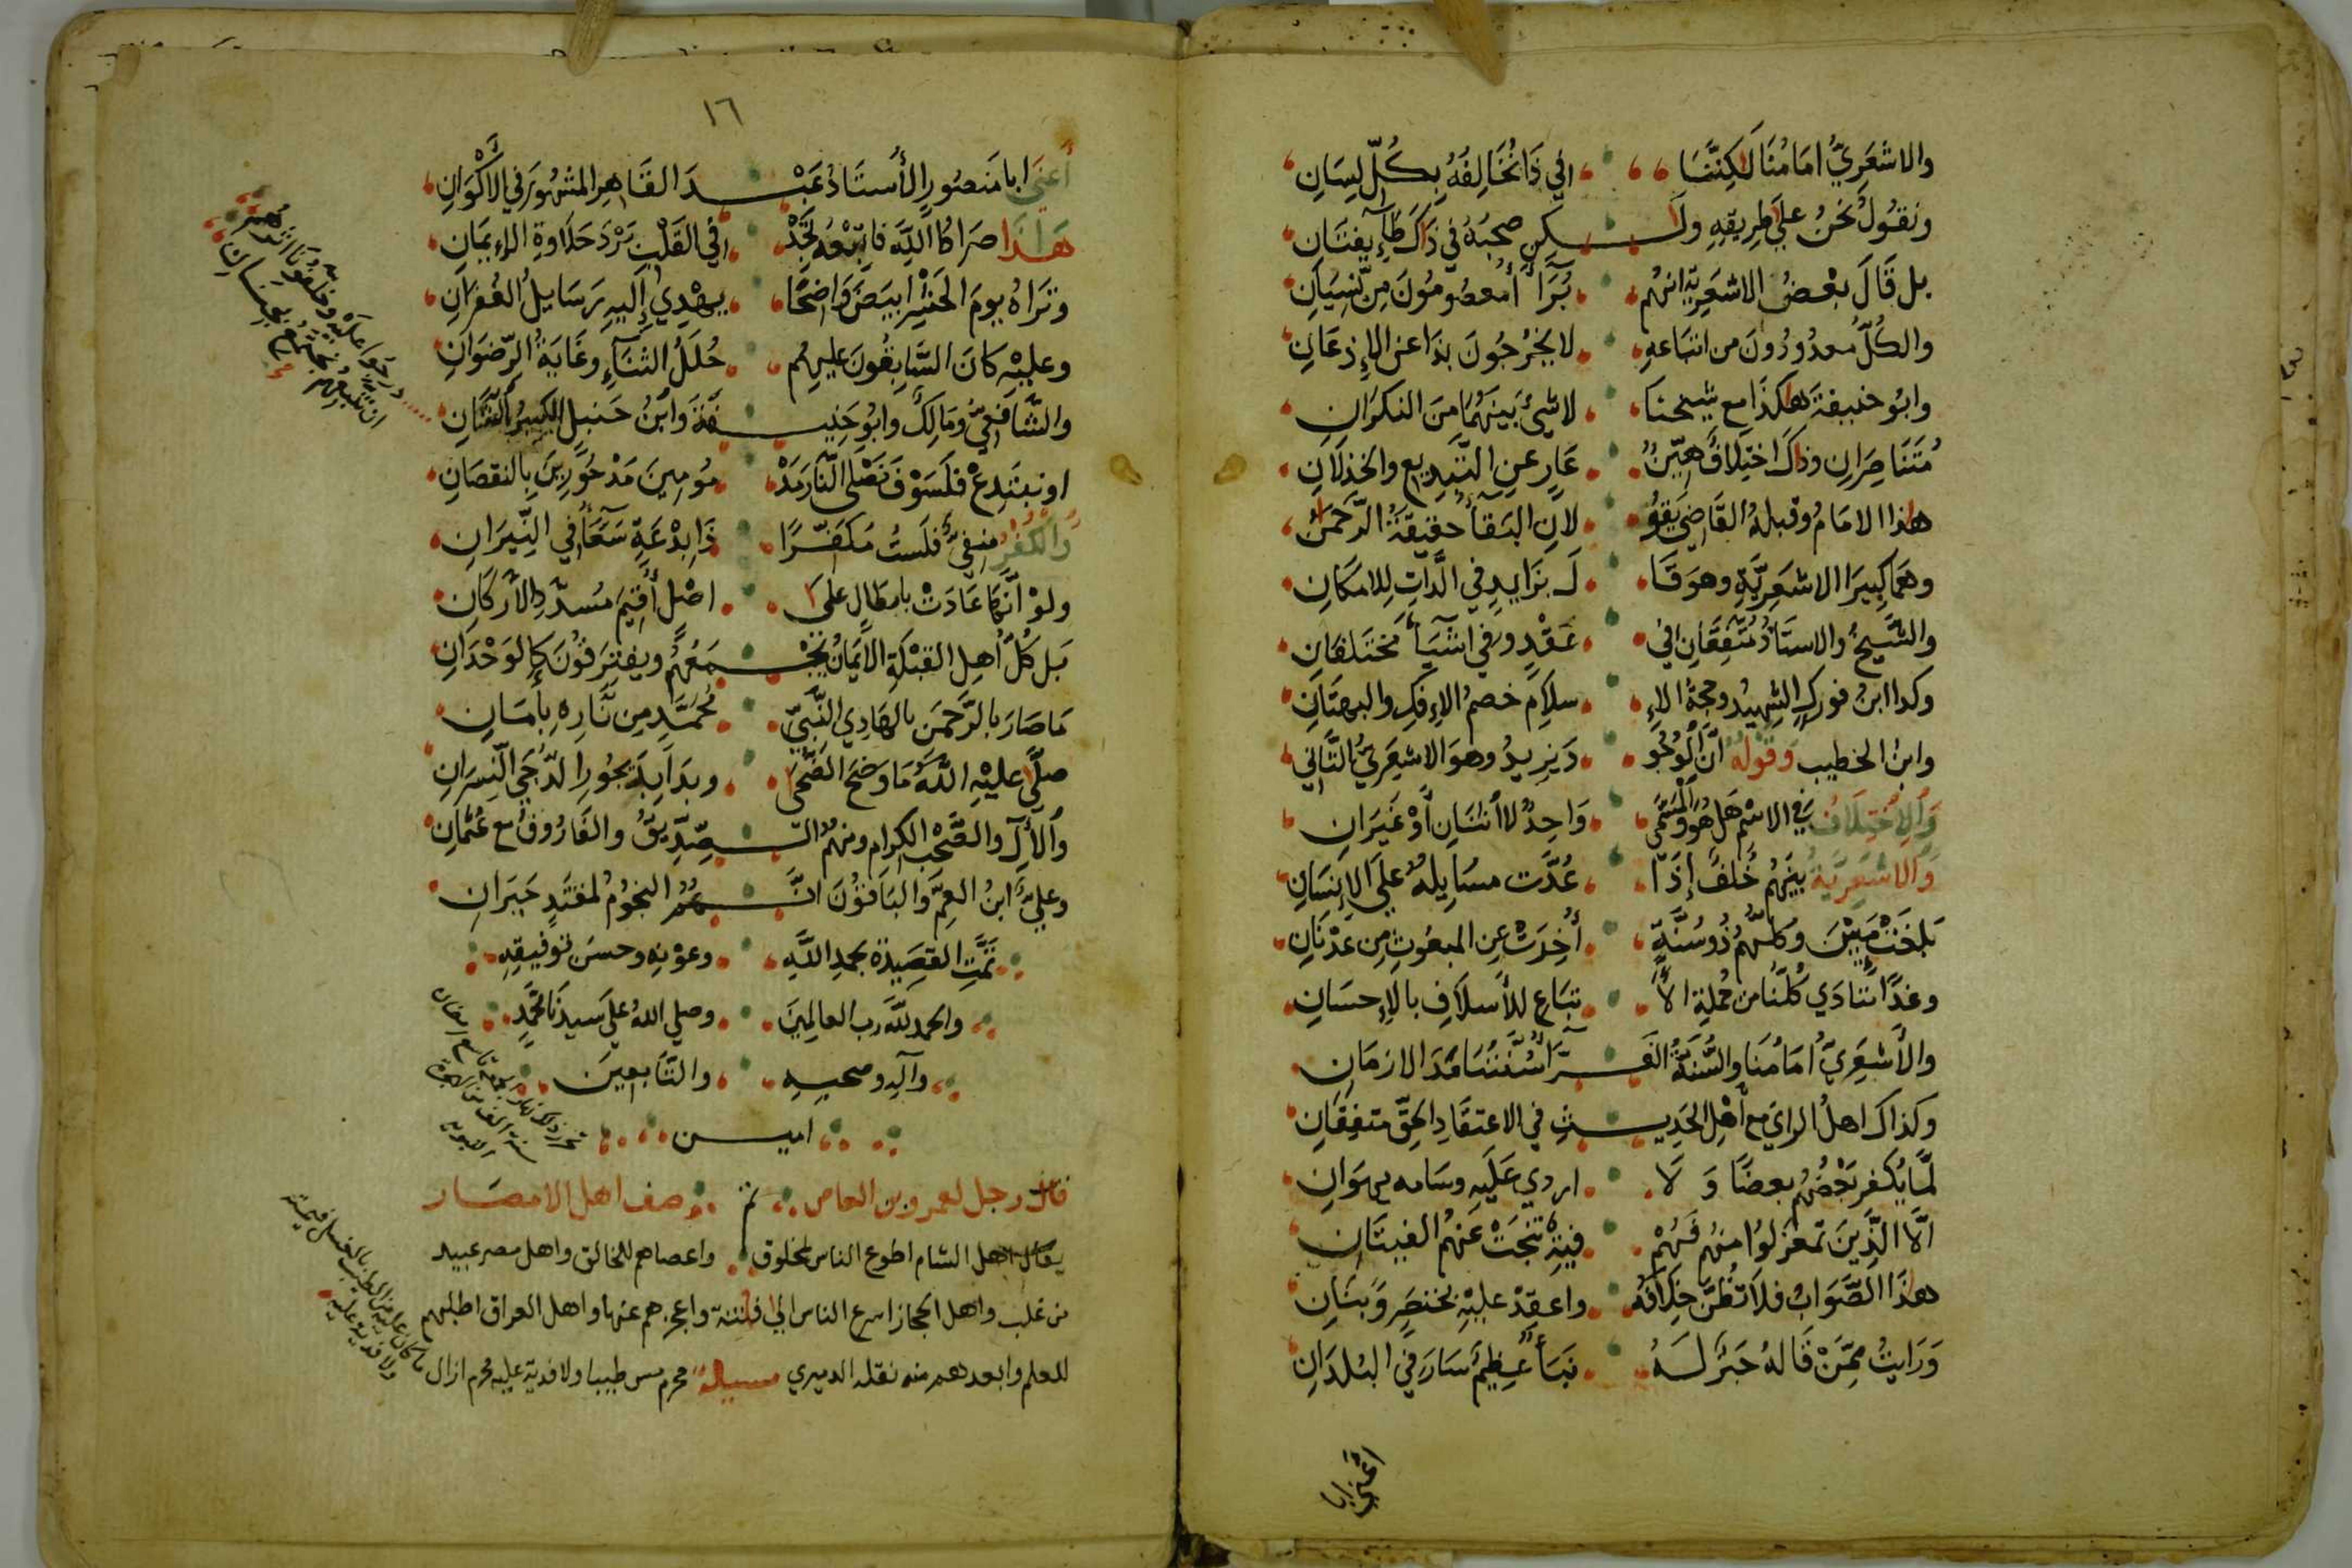 والاشعَرِيُّ امَامُنَا لَكِنَّنَا في ذَا نُخَالِفُهُ بِكُلِّ لِسَانِ
ونقُولُ نَحْنُ عَلى طريقِهِ ولَكن صحبُهُ في ذاكَ طَآئِفتَانِ
بل قَالَ بعْضُ الاشعَرِيّةِ انهُم بُرَآءُ معصُومُونَ من نِسْيَانِ
والكُلُّ معدُودُونَ من اتبَاعهِ لا يَخْرجُونَ بذَا عن الإذعَانِ
وابُو حنيفةَ هكذَا مع شيخنَا لا شيءَ بَينهُمَا منَ النكرَانِ
مُتَنَاصِرَانِ وذاكَ اختلافٌ هيّنٌ عَارٍ عنِ التبدِيع والخذلَانِ
هذا الامَامُ وقبلهُ القَاضي يَقُو لانِ البَقَآءُ حقيقةُ الرَّحمن
وهمَا كبيرَا الاشعَرِيَّةِ وهو قَا لَ بزَايدٍ في الذَّاتِ للامكَانِ
والشَّيخُ والاستَاذُ مُتَّفِقَانِ في عَقْدٍ وفي اشيَآءَ مختلفَانِ
وكذا ابنُ فوركٍ الشهِيدُ وحجةُ الإ سلامِ خصمُ الإفكِ والبهتَانِ
وابنُ الخطيب وقولُهُ انَّ الوُجُو دَ يَزيدُ وهوَ الاشعَرِيُّ الثَّاني
وَالاِختلافُ في الاسْم هَل هُوَ وَالمُسَمَّى وَاحِدٌ لا اثنَانِ أوْ غَيرَانِ
وَالاشعَرِيَّةُ بَينهُم خُلفٌ إذَا عُدَّت مسَايلُهُ عَلى الإنسَانِ
بَلغَتْ مِئينَ وكلُّهُم ذُو سُنَّةٍ أُخِذَتْ عن المبعُوثِ من عَدْنَانِ
وغدًا ننَادَي كُلُّنَا من جُملةِ الأ تبَاع للأسلافِ بالإحسَانِ
والأشعَرِيُّ امَامُنَا والسُّنَّةُ الغَرَّآءُ سُنَّتُنَا مَدَا الازمَانِ
وكذاكَ اهلُ الراي مع أهْلِ الحَدِيثِ في الاعتقَادِ الحقِّ متفِقَانِ
لمَّا يُكفر بَعْضُهُم بعضًا وَلَا ازري عَليهِ وسَامه بهوَانِ
الَّا الذِّينَ تمعزلوُا منهُم فَهُمْ فيهِ تنحَّتْ عَنهُم الفيتَانِ
هذَا الصَّوَابُ فلَا تظُنَّ خِلَافَهُ واعقدْ عليْهِ بخنصَرٍ وَبنَانِ
وَرَايتُ ممَّنْ قَالهُ حَبرٌ لَهُ نبَأ عظيمٌ سَارَ في البُلدَانِ
أعني ابا
١٦
أعني ابا مَنصُورٍ الأُستَاذُ عَبْدَ القَاهِر المشهُورَ في الأكْوَانِ
هَذَا صرَاطُ اللهِ فاتّبعْهُ تجدْ في القَلْبِ بَرْدَ حَلاوةِ الإيمَانِ
وتَرَاهُ يومَ الحَشْرِ ابيَضَ وَاضِحًا يهْدِي إليهِ رَسَايلُ الغُفرَانِ
وعليْهِ كانَ السَّابِقُونَ عليهِم حُلَلُ الثنآءِ وغَايَةُ الرّضوَانِ
والشَّافعِيُّ ومَالكٌ وابُو حَنيفَةَ وابْنُ حَنبلٍ الكبيرُ الشَّانِ
درجوا عليه وخلفونا اثرهم
ان نتبعهم نجتمع بجنان
او نبتدِعْ فلَسَوْفَ نَصْلى النَّارَ مَذْ مومينَ مَدْحُورِينَ بالنقصَانِ
وَالكُفْرُ منفِيٌّ فلَستُ مُكَفِّرًا ذَا بِدْعَةٍ شَنعَآءَ في النِّيرَانِ
بَل كُلُّ أهلِ القبْلةِ الايمَانُ يَجْمَعُهُم ويفترقُونَ كالوَحْدَانِ
مَا صَارَ بالرَّحمَن بالهَادِي النَّبِيِّ مُحمَّدٍ من نَّارهِ بأمَانِ
صلَّى عليْهِ اللهُ مَا وَضَحَ الضُّحَى وبدَا بدَيجُورِ الدُّجَي النِّسرَانِ
والآلِ والصَّحْبِ الكرام ومنهُم الصّدِّيقُ والفَارُوقُ مع عُثمَانِ
وعليٌّ ابنُ العمِّ وَالبَاقُونَ انَّهُمُ النجُومُ لمقتدٍ حَيرَانِ
تمَّتِ القصِيدَة بحمدِ اللهِ وعوْنِهِ وحسن توفيقِهِ
والحمد للهِ رب العالمينَ وصلى اللهُ على سيدنَا محَمَّدٍ
وآلِهِ وصحبِهِ والتَّابعِينَ
اميـن
قال رجل لعمرو بن العاص صف اهل الامصَار
يقال اهل الشام اطوع الناس لمخلوق واعصاهم للخالق واهل مصر عبيد
من غلب واهل الحجاز اسرع الناس الى فتنة واعجزهم عنها واهل العراق اطلبهم
للعلم وابعدهم منه نقله الدميري مسيلة محرم مس طيبا ولا فدية عليه محرم ازال